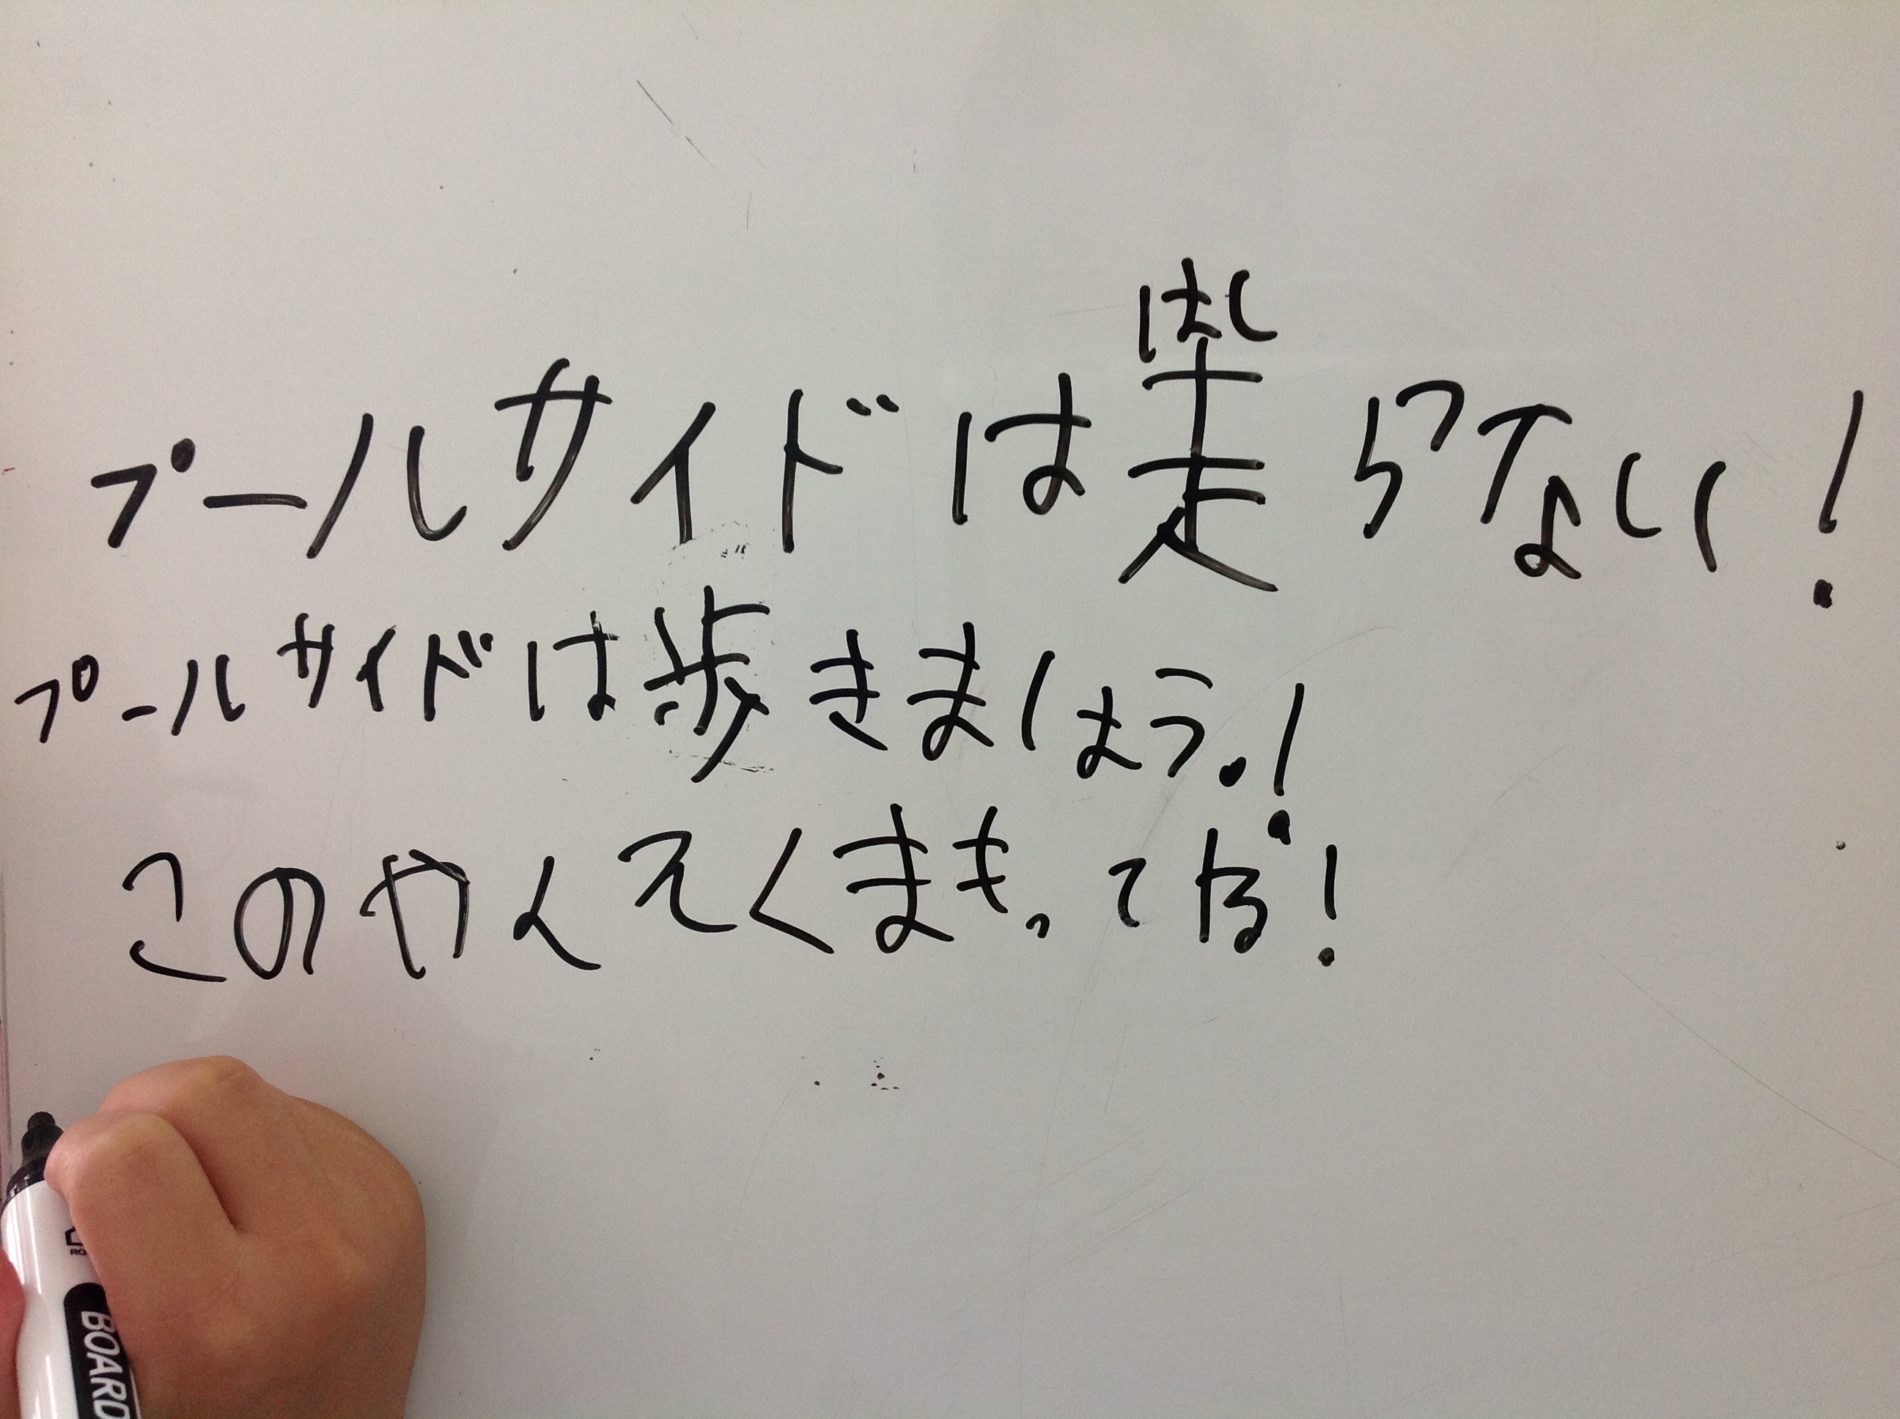 はし
プールサイドは走らない!
プールサイドは歩きましょう。!
このやくそくまもってね!
BOARD